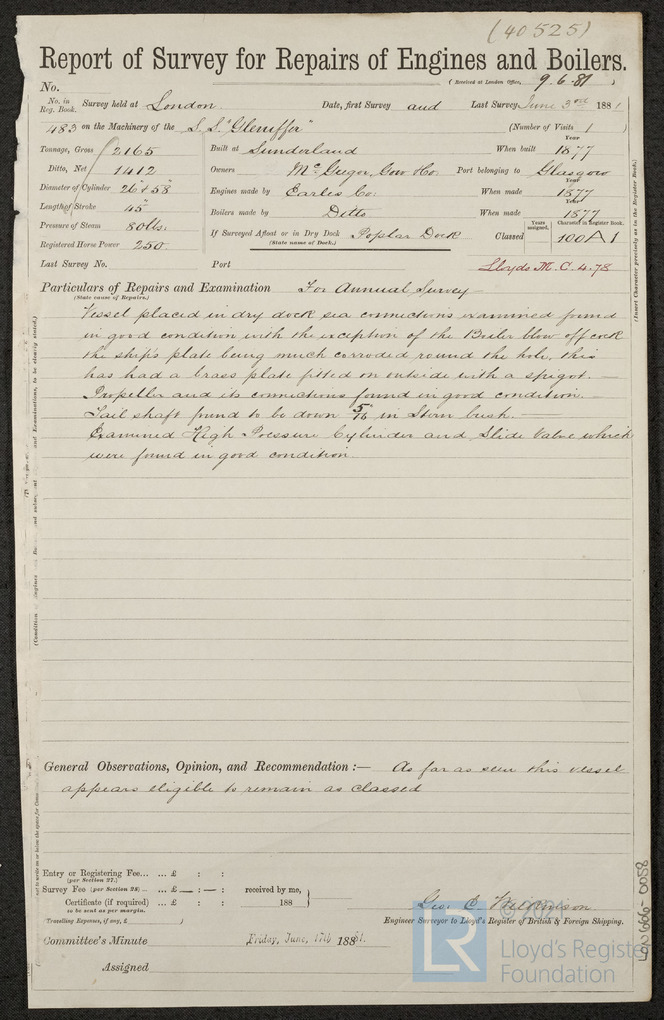 (40525)
Report of Survey for Repairs of Engines and Boilers.
No. (Received at London Office, 9.6.81)
No. in Reg. Book. Survey held at London Date, first Survey and Last Survey June 3rd 1881
483 on the Machinery of the S.S. "Gleniffer" (Number of Visits 1)
Tonnage, Gross 2165 Built at Sunderland When built Year 1877
Ditto, Net 1412 Owners McGregor, Gow Port belonging to Glasgow
Diameter of Cylinder 26" & 58" Engines made by Earles Co: When made Year 1877
Length of Stroke 45" Boilers made by Ditto When made Year 1877
Pressure of Steam 80 lbs. If Surveyed Afloat or in Dry Dock Poplar Dock Classed Years assigned. Character in Register Book. 100A1
(State name of Dock.)
Registered Horse Power 250
Last Survey No. Port Lloyds M.C. 4.78
Particulars of Repairs and Examination For Annual Survey
(State cause of Repairs.)
Vessel placed in dry dock sea connections examined found
in good condition with the exception of the Boiler blow off cock
the ship's plate being much corroded round the hole, this
has had a brass plate fitted on outside with a spigot. —
Propeller and its connections found in good condition. —
Tail shaft found to be down 5/16 in Stern bush. —
Examined High Pressure Cylinder and Slide Valve which
were found in good condition.
General Observations, Opinion, and Recommendation :— As far as seen this vessel
appears eligible to remain as classed
Entry or Registering Fee... ... £ : :
(per Section 27.)
Survey Fee (per Section 28) — ... £ — : — :
received by me,
Certificate (if required) ... £ : : 188
to be sent as per margin.
(Travelling Expenses, if any, £ )
Geo. C.
Engineer Surveyor to Lloyd's Register of British & Foreign Shipping.
Committee's Minute Friday, June, 17th 1881.
Assigned
(Insert Character precisely as in the Register Book.)
LON666-0058
LR
Lloyd's Register
Foundation